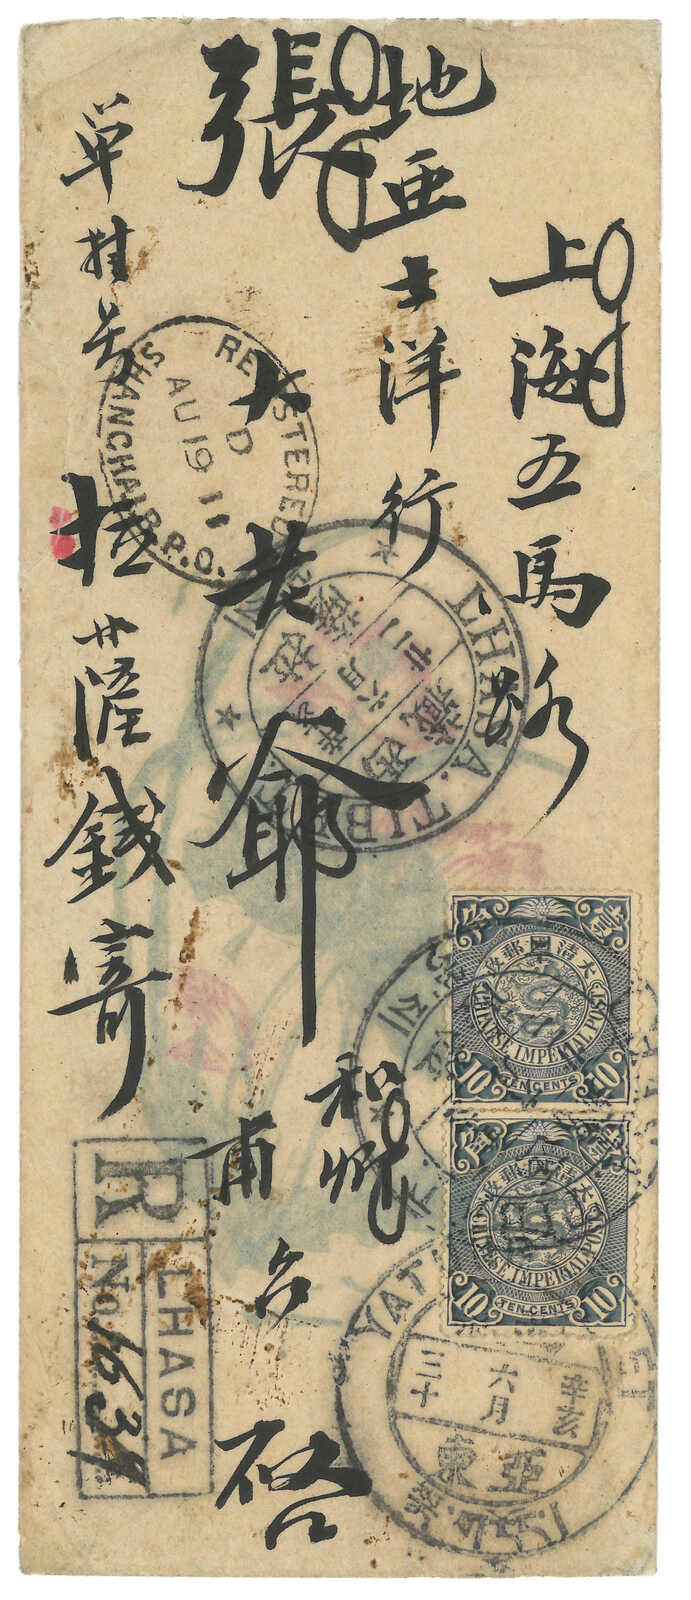 上海五馬路
地亜士洋行
張
大老爺
和卿
甫台啓
單掛号
拉薩錢寄
REGISTERED
D
AU 19 11
SHANGHAI B.P.O.
LHASA. TIB
西藏
六月
廿二
大清國郵政
CHINESE IMPERIAL POST
10 TEN CENTS 10
大清國郵政
CHINESE IMPERIAL POST
10 TEN CENTS 10
YAT
辛亥
六月
三十
亜東
R
LHASA
No 1637